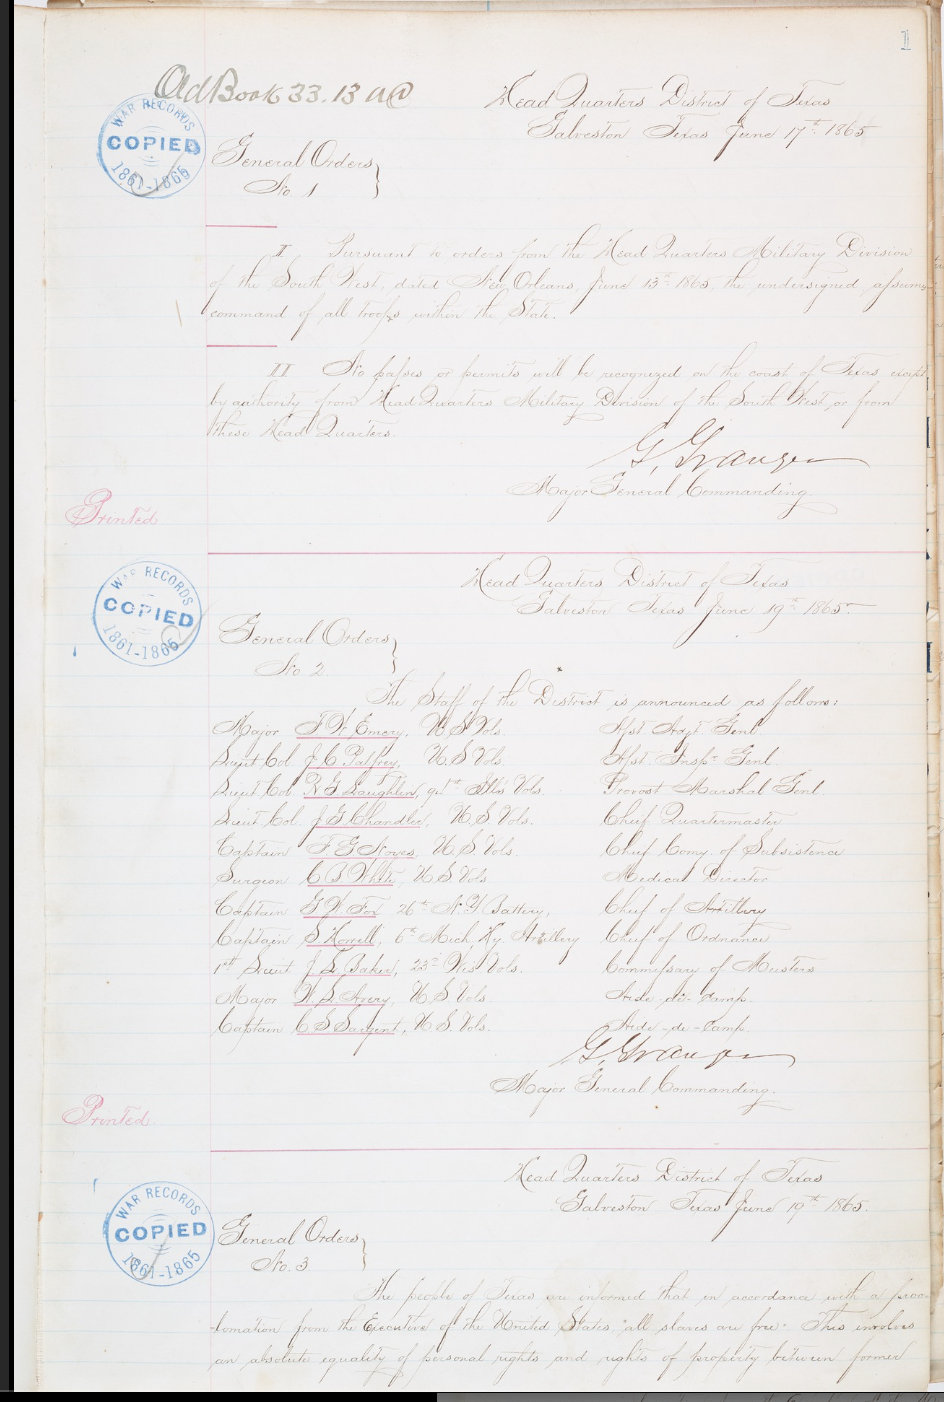 1
Ad Book 33. 13 AG
WAR RECORDS
COPIED
1861-1865
Head Quarters District of Texas
Galveston Texas June 17th 1865
General Orders
No. 1
I Pursuant to orders from the Head Quarters Military Division
of the South West, dated New Orleans, June 13th 1865, the undersigned assumes
command of all troops within the State.
II No passes or permits will be recognized on the coast of Texas except
by authority from Head Quarters Military Division of the South West, or from
these Head Quarters.
G. Granger
Major General Commanding.
Printed
WAR RECORDS
COPIED
1861-1865
Head Quarters District of Texas
Galveston Texas June 19th 1865.
General Orders
No. 2
The Staff of the District is announced as follows:
Major F W Emery, U.S. Vols. Asst. Adjt. Genl.
Lieut Col J. C. Palfrey, U.S. Vols. Asst. Inspr. Genl.
Lieut Col R G Laughlin, 94th Ills Vols. Provost Marshal Genl.
Lieut Col. J G Chandler, U.S. Vols. Chief Quartermaster
Captain F G Noyes, U.S. Vols. Chief Comy. of Subsistence
Surgeon C B White, U.S. Vols Medical Director
Captain G W Fox 26th N.Y. Battery, Chief of Artillery
Captain S Howell, 6th Mich. Hy. Artillery Chief of Ordnance
1st Lieut J. L. Baker, 23rd Wis Vols. Commissary of Musters
Major W. L. Avery, U.S. Vols. Aide-de-Camp.
Captain C S Sargent, U.S. Vols. Aide-de-Camp.
G. Granger
Major General Commanding.
Printed
WAR RECORDS
COPIED
1861-1865
Head Quarters District of Texas
Galveston Texas June 19th 1865.
General Orders
No. 3
The people of Texas are informed that in accordance with a proc-
lamation from the Executive of the United States, "all slaves are free." This involves
an absolute equality of personal rights and rights of property between former